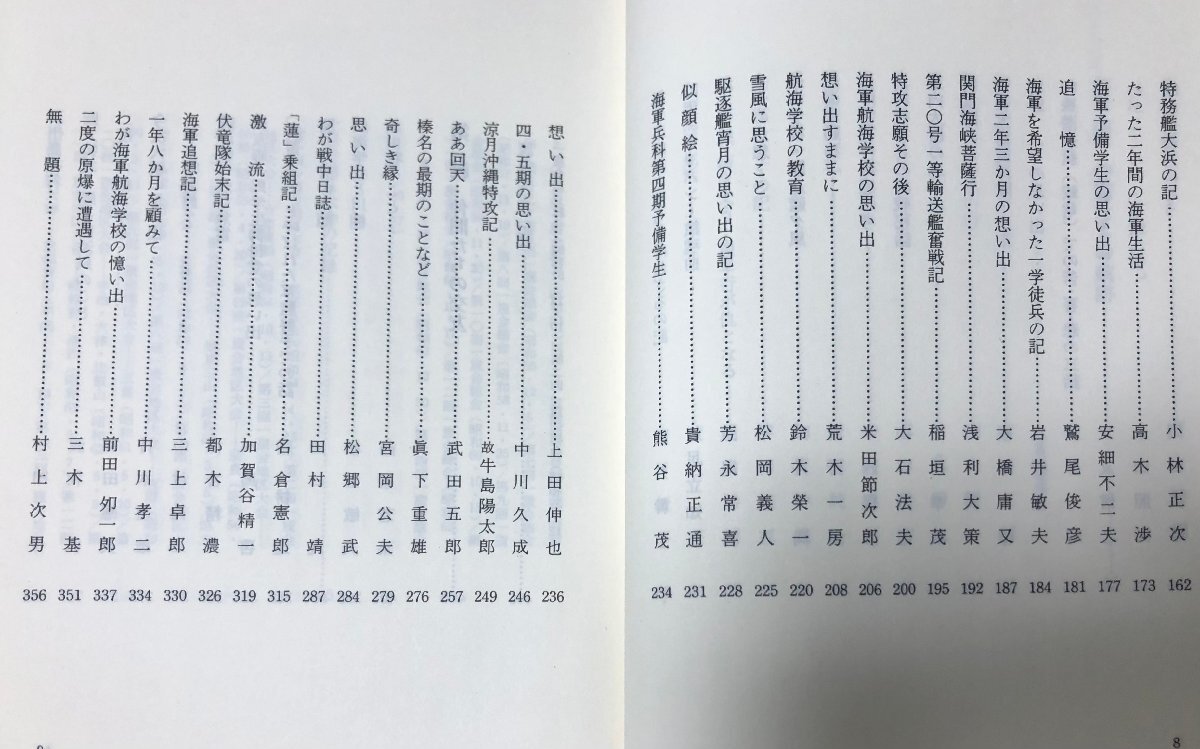 特務艦大浜の記……小林正次 162
たった二年間の海軍生活……高木渉 173
海軍予備学生の思い出……安細不二夫 177
追憶……鷲尾俊彦 181
海軍を希望しなかった一学徒兵の記……岩井敏夫 184
海軍二年三か月の想い出……大橋庸又 187
関門海峡菩薩行……浅利大策 192
第二〇号一等輸送艦奮戦記……稲垣茂 195
特攻志願その後……大石法夫 200
海軍航海学校の思い出……米田節次郎 206
想い出すままに……荒木一房 208
航海学校の教育……鈴木榮一 220
雪風に思うこと……松岡義人 225
駆逐艦宵月の思い出の記……芳永常喜 228
似顔絵……貴納正通 231
海軍兵科第四期予備学生……熊谷茂 234
8
想い出……上田伸也 236
四・五期の思い出……中川久成 246
涼月沖縄特攻記……故牛島陽太郎 249
ああ回天……武田五郎 257
榛名の最期のことなど……眞下重雄 276
奇しき縁……宮岡公夫 279
思い出……松郷武 284
わが戦中日誌……田村靖 287
「蓮」乗組記……名倉憲郎 315
激流……加賀谷精一 319
伏竜隊始末記……都木濃 326
海軍追想記……三上卓郎 330
一年八か月を顧みて……中川孝二 334
わが海軍航海学校の憶い出……前田夘一郎 337
二度の原爆に遭遇して……三木基 351
無題……村上次男 356